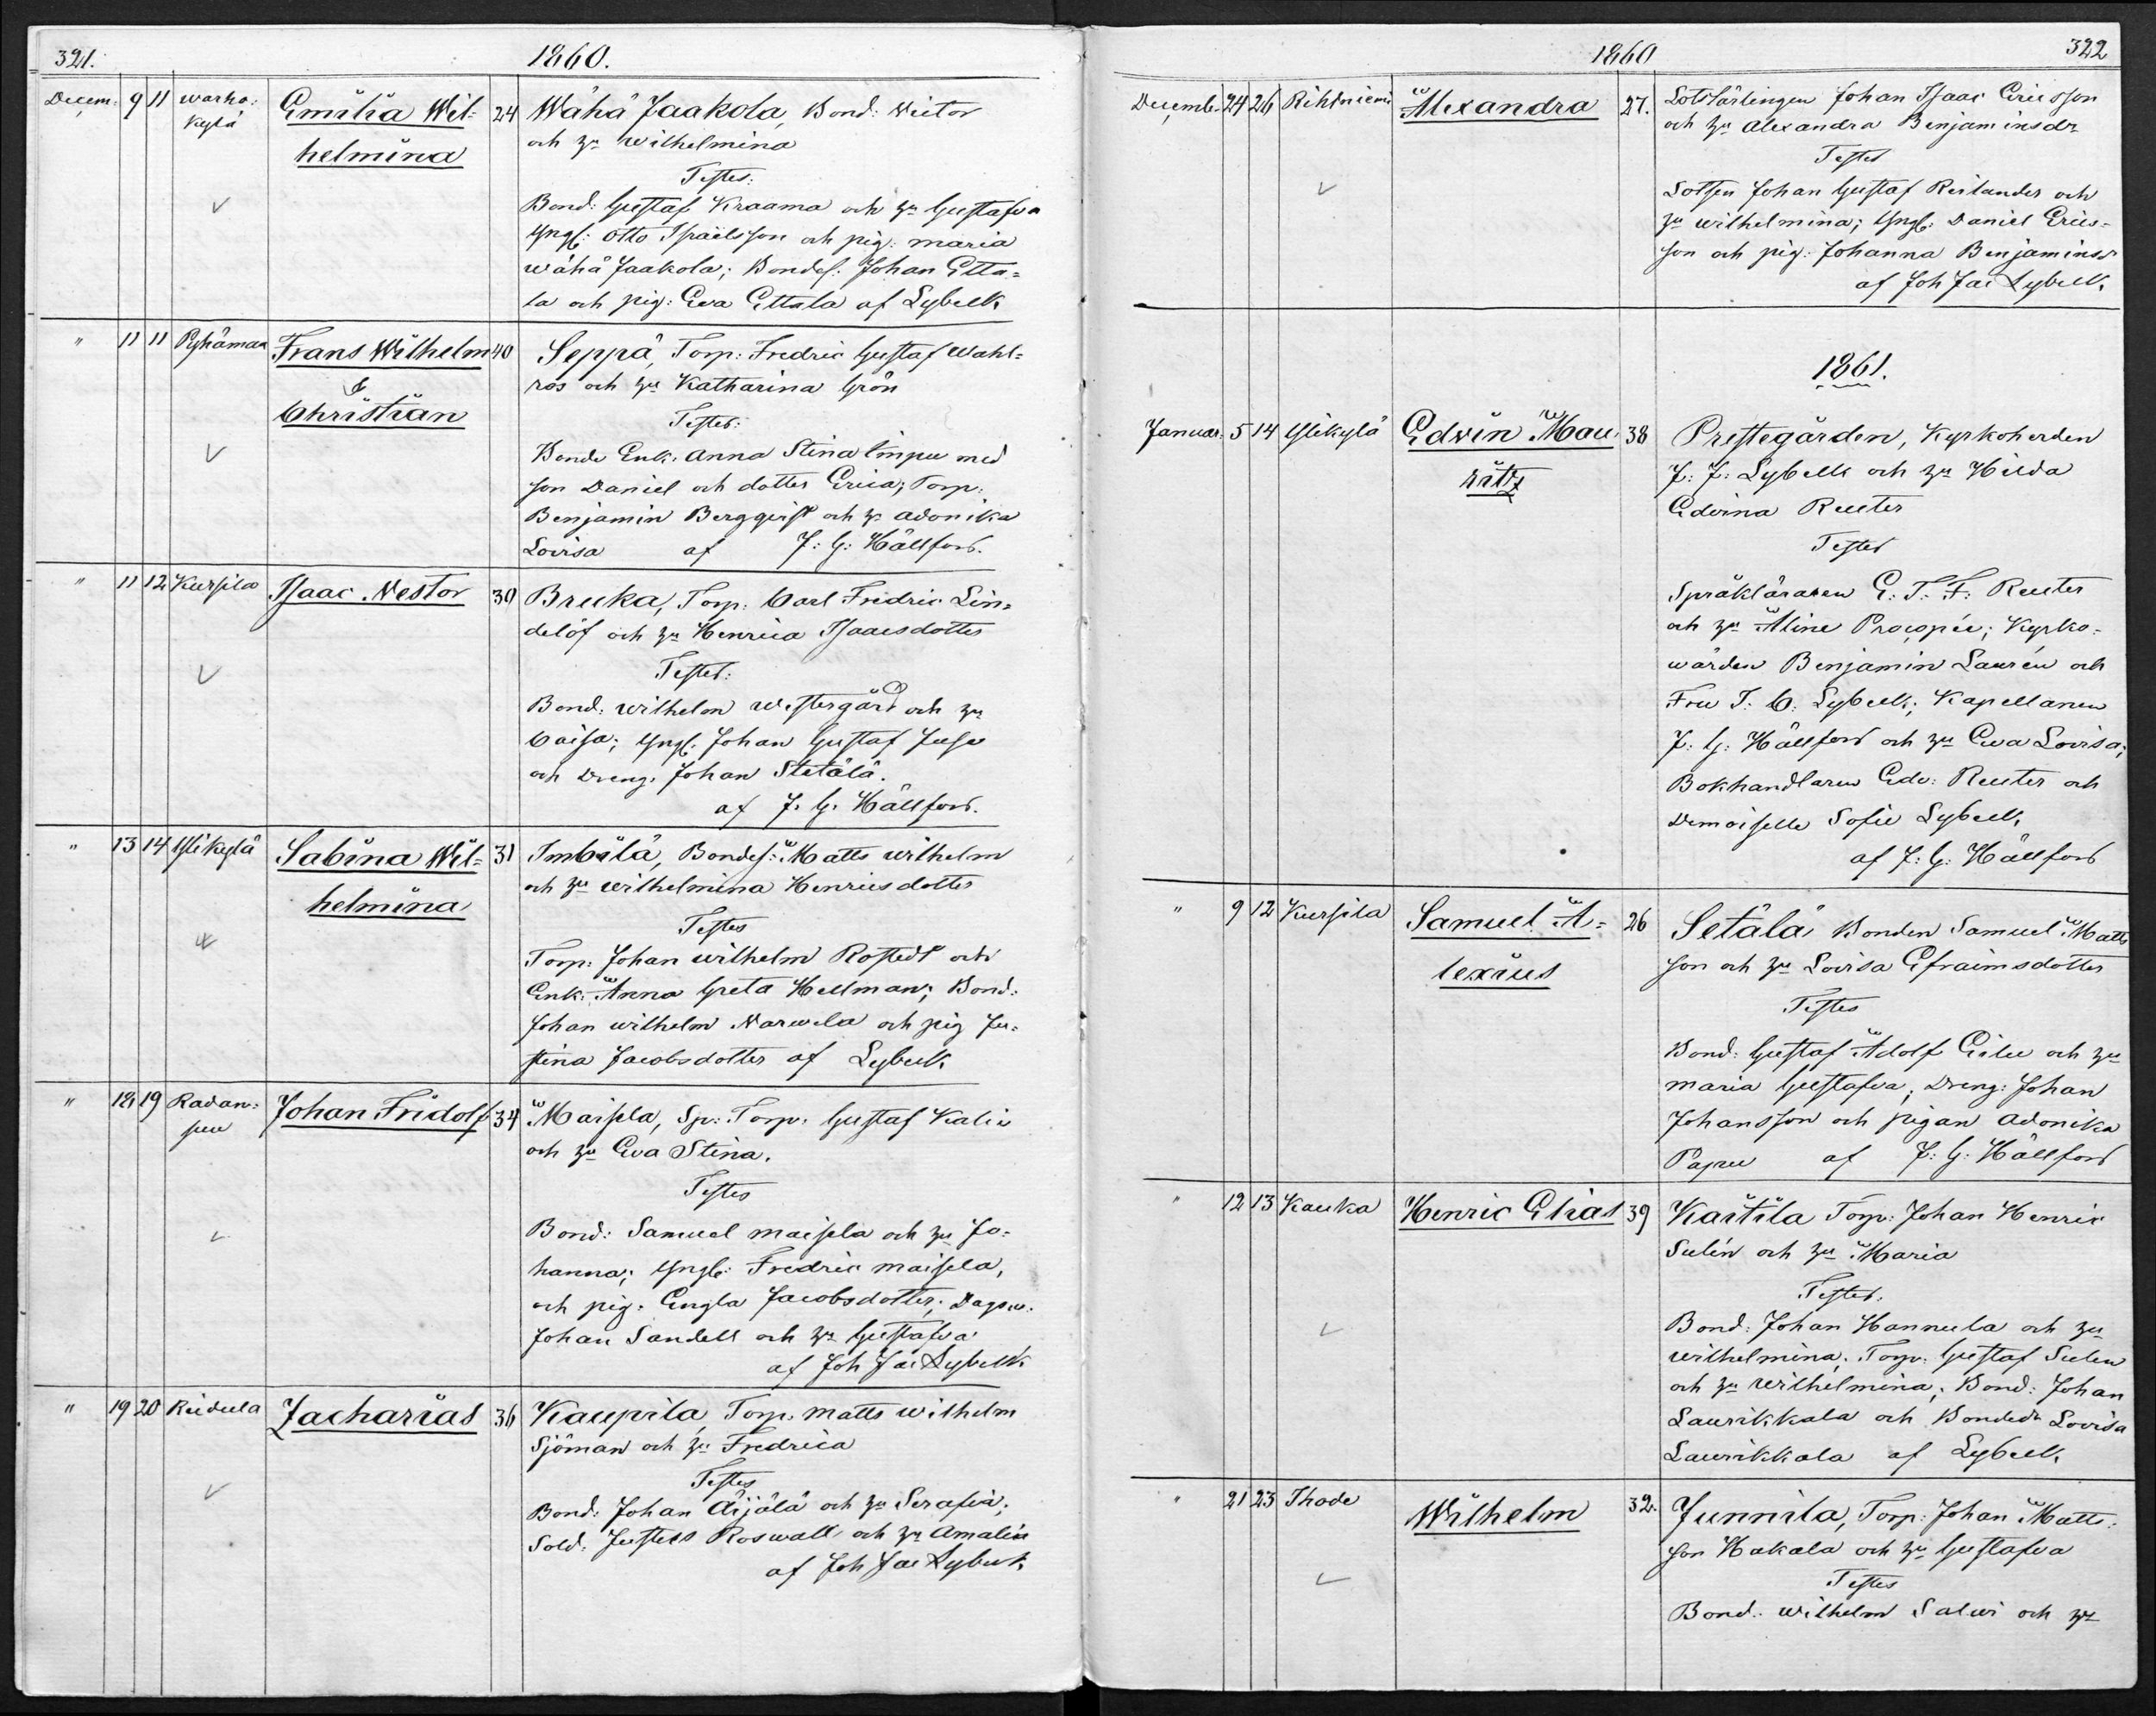 321.
1860.
Decem: 9 11 Warho: Emilia Wil= 24 Wähä Jaakola, Bond: Victor
kylä helmina och hu Wilhelmina
Testes:
Bond: Gustaf Kraama och hu Gustafva
Yngl: Otto Israëlsson och pig: Maria
Wähä Jaakola; Bondes: Johan Etta=
la och pig: Eva Ettala af Lybeck
" 11 11 Pyhämaa Frans Wilhelm 40 Seppä, Torp: Fredric Gustaf Wahl=
& ros och hu Katharina Grön
Christian
Testes:
Bonde Enk: Anna Stina Simpu med
son Daniel och dotter Erica; Torp:
Benjamin Bergqvist och hu Adonika
Lovisa af J: G: Hällfors.
" 11 12 Kursila Isaac Nestor 39 Bruka, Torp: Carl Fredric Lin=
delöf och hu Henrica Isaacsdotter
Testes:
Bond: Wilhelm Westergård och hu
Caisa; Yngl: Johan Gustaf Jusu
och Dreng: Johan Sletälä.
af J. G. Hällfors.
" 13 14 Ylikylä Sabina Wil= 31 Imbilä, Bondes: Matts Wilhelm
helmina och hu Wilhelmina Henricsdotter
Testes
Torp: Johan Wilhelm Rostedt och
Enk: Anna Greta Hellman; Bond:
Johan Wilhelm Narvela och pig Ju=
stina Jacobsdotter af Lybeck
" 18 19 Radan= Johan Fridolf 34 Maisela, Sp: Torp: Gustaf Kalin
suu och hu Eva Stina.
Testes
Bond: Samuel Maisela och hu Jo=
hanna; Yngl: Fredric Maisela,
och pig: Engla Jacobsdotter; Dagsv.
Johan Sandell och hu Gustafva
af Joh Jac Lybeck
" 19 20 Reidula Zacharias 36 Kaupila, Torp: Matts Wilhelm
Sjöman och hu Fredrica
Testes
Bond: Johan Äijälä och hu Serafia;
Sold: Justus Roswall och hu Amalia
af Joh Jac Lybeck
1860
322
Decemb. 24 26 Rihtniemi Alexandra 27. Lotslärlingen Johan Isaac Ericsson
och hu Alexandra Benjaminsdr
Testes
Lotsen Johan Gustaf Reilander och
hu Wilhelmina; Yngl: Daniel Erics=
son och pig: Johanna Benjaminsdr
af Joh Jac Lybeck
1861.
Januar: 5 14 Ylikylä Edvin Mau= 38 Prestegården, Kyrkoherden
ritz J: J: Lybeck och hu Hilda
Edvina Reuter
Testes
Språkläraren E: T: F: Reuter
och hu Aline Procopée; Kyrko=
wärden Benjamin Laurén och
Fru J: C: Lybeck; Kapellanen
J: G: Hällfors och hu Eva Lovisa;
Bokhandlaren Edv: Reuter och
Demoiselle Sofie Lybeck
af J: G: Hällfors
" 9 12 Kursila Samuel A= 26 Setälä Bonden Samuel Matts
lexius son och hu Lovisa Efraimsdotter
Testes
Bond: Gustaf Adolf Eilu och hu
Maria Gustafva; Dreng: Johan
Johansson och pigan Adonika
Papu af J: G: Hällfors
" 12 13 Kauka Henric Elias 39 Kaitila Torp: Johan Henric
Sulén och hu Maria
Testes.
Bond: Johan Hannula och hu
Wilhelmina; Torp: Gustaf Sulen
och hu Wilhelmina; Bond: Johan
Laurikkala och Bondedr Lovisa
Laurikkala af Lybeck
" 21 23 Ihode Wilhelm 32. Junnila, Torp: Johan Matts=
son Hakala och hu Gustafva
Testes
Bond: Wilhelm Salvi och hu